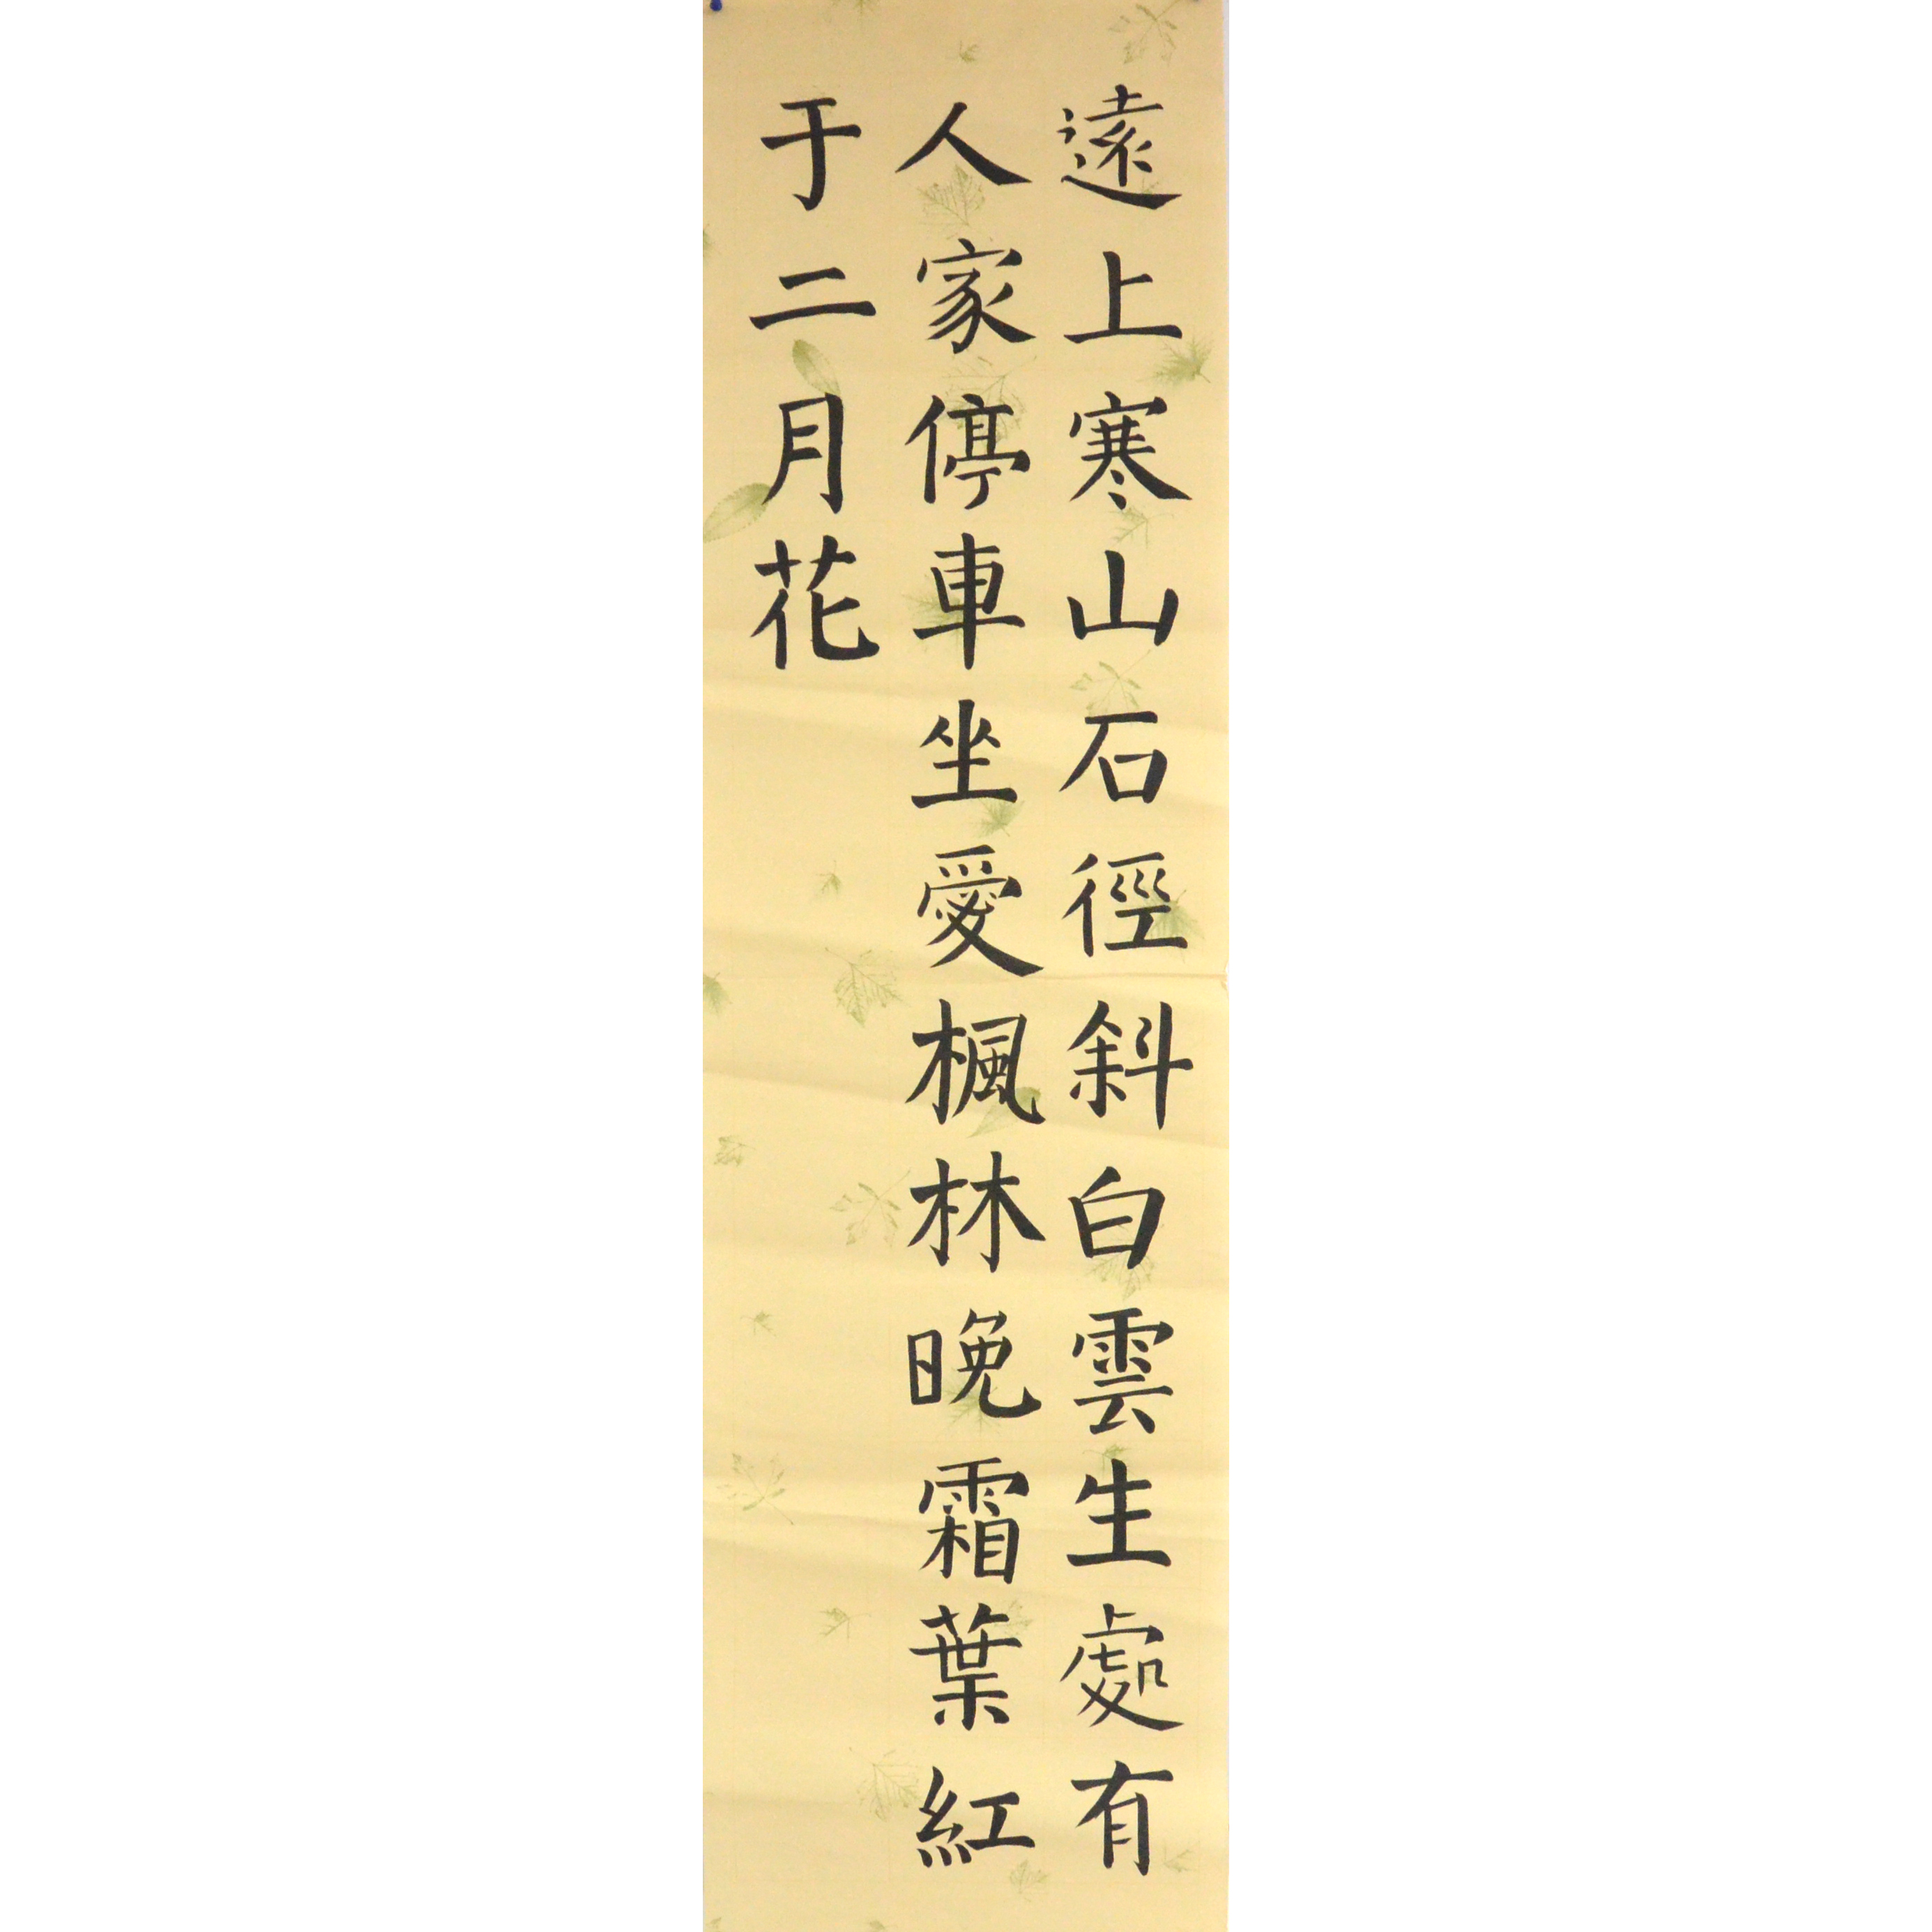 遠上寒山石徑斜白雲生處有
人家停車坐愛楓林晚霜葉紅
于二月花